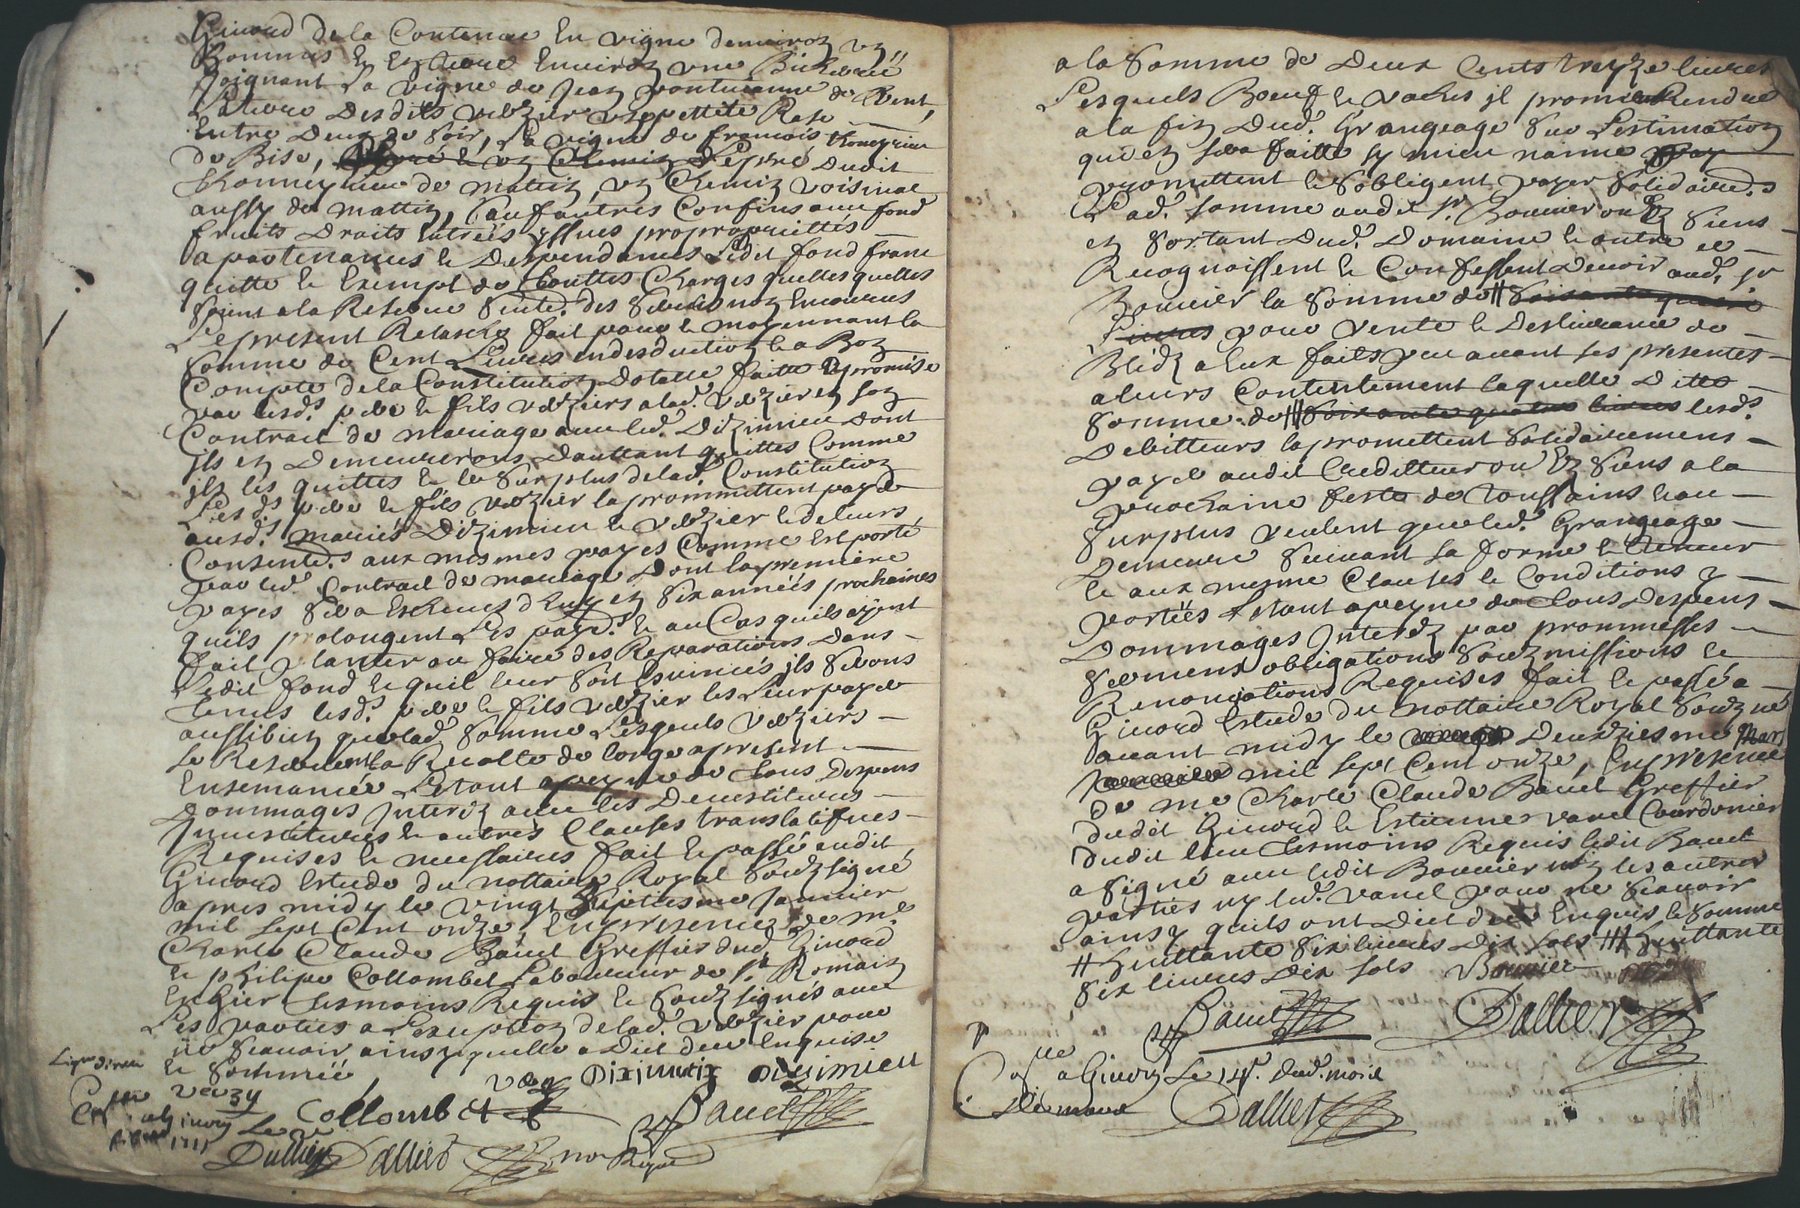 Givord de la Contenue En vigne denviroz vz
hommas Et En terre Enviroz une Bicherée
Joignant La vigne de Jean vonturanne de vent,
La terre Desdits verzier une pettite Rase
Entre Deux de soir, La vigne de francois thomyrieu
de Bise, un Chemiz Dudit
thomeyrieu de matiz, vz Chemiz voisinal
aussy de mattiz, sauf autres Confins avec fond
fruits Droits Entrées yssues propropriettés
apartenances et Despendances Ledit fond franc
quitte et Exempt de touttes Charges quelles quelles
soient a la Reserve servis noz Encourus
Le present Relaschs fait pour et moyennant la
somme de Cent Livres endesduction et a Boz
Compte de la Constitution Dotalle faitte et promise
par lesds pere et fils verziers a lad. verzier Ez soz
Contrat de mariage avec led. Dizimieu dont
jls Ez Demeureront Dauttant quittes Comme
jls les quittes et le surplus de lad. Constitution
Lesds pere et fils verzier la promettent payer
ausd. mariés Dizimieu et verzier et de leurs
Consentt. aux mesmes payes Comme est porté
par led. Contrat de mariage Dont la premiere
payes sera Escheues dhuy Ez six années prochaines
quils prolongent Les payt. et au Cas quils ayent
fait planter ou faire des Reparations Dans
Ledit fond et quil leur soit Esvincés jls seront
tenus lesds pere et fils verzier les Leur payer
aussibiez que lad. somme Lesquels verziers
se Reservent la Recolte de lorge apresent
Ensemancée Letout apeyne de tous Despens
Dommages Interetz avec les Devestitures
Jnvestitures et autres Clauses translatifves
Requises et necessaires fait et passé audit
Givord Estude du nottaire Royal Souzsigné
apres midy le vingt septiesme Janvier
mil sept Cent onze, En presence de me
Charle Claude Bauet Greffier dud. Givord
et philipe Collombet Laboureur de st Romain
En Gier tesmoins Requis et souzsignés avec
Les parties a Lexception de lad. verzier pour
ne scavoir ainsy quelle a Dict de ce Enquise
et sommée,
Dizimieu Dizimieu
Collombet Bauet
Dallier
a la somme de Deux Cents treyze livres
Lesquels Boeuf et vaches jl promet Rendre
a la fiz Dud. Grangeage sur Lestimation
quiez sera faitte
promettent et sobligent payer solidairet.
Lad. somme audit sr. Bouvier ou Ez siens
Ez sortant Dud. Domaine et outre ce
Recognoissent et Confessent Devoir aud. sr
Bouvier la somme de # soixante quatre
Livres pour vente et Deslivrance de
Bledz a Eux faits peu avant ses presentes
aleurs Contentement laquelle Ditte
somme de # soixante quatre livres lesds
Debitteurs la promettent solidairement
payer audit Creditteur ou Ez siens a la
prochaine feste de toussains et au
surplus veulent que led. Grangeage
Demeure suivant sa forme et teneur
et aux mesme Clauses et Conditions y
portées Letout apeyne de tous Despens
Dommages Interetz par prommesses
serment obligations souzmissions et
Renonciations Requises fait et passé a
Givord Estude du nottaire Royal souzné
avant midy le Deuxiesme Mars
mil sept Cent onze, En presence
de me Charle Claude Bauet Greffier
dudit Givord et Estienne vanel Courdonier
dudit lieu tesmoins Requis ledit Bauet
a signé avec ledit Bouvier les autres
parties ny led. vanel pour ne scavoir
ainsy quils ont Dict de ce Enquis et sommé
# huittante six livres Dix sols # huittante
six livres dix sols Bouvier
Bauet Dallier
a Givord Le 14e. dud. mois
Dallier